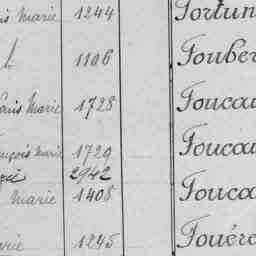 Marie 1244 Fortun
1106 Fouber
Louis Marie 1728 Foucau
nçois Marie 1729 Foucau
2942
Marie 1408 Fouca
arie 1245 Fouér